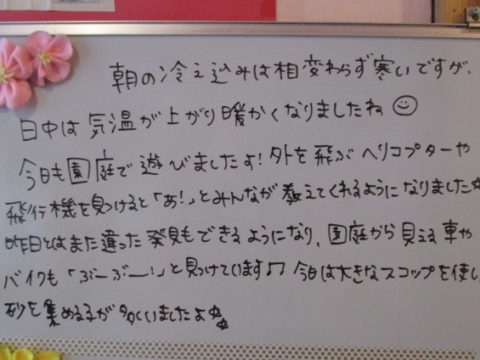 朝の冷え込みは相変わらず寒いですが、
日中は気温が上がり暖かくなりましたね
今日も園庭で遊びましたよ!外を飛ぶヘリコプターや
飛行機を見つけると「あ!」とみんなが教えてくれるようになりました
昨日とはまた違った発見もできるようになり、園庭から見える車や
バイクも「ぶーぶー!」と見つけています♫ 今日は大きなスコップを使い
砂を集める子が多くいましたよ